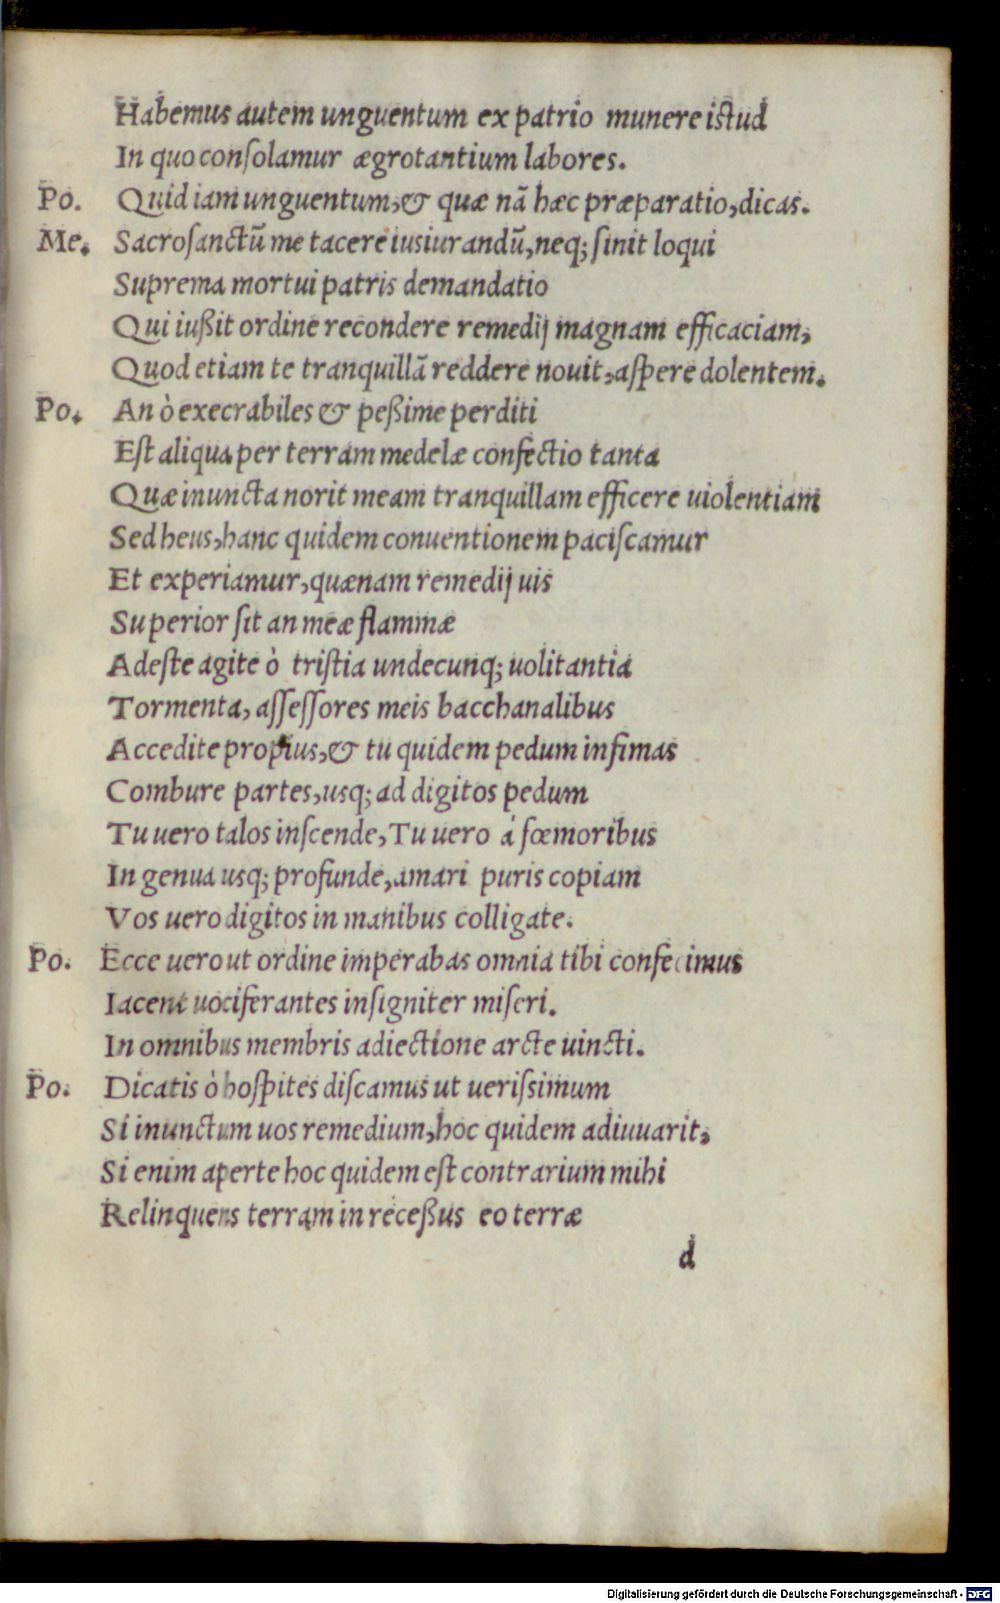 Habemus autem unguentum ex patrio munere istud
In quo conſolamur ægrotantium labores.
Po. Quid iam unguentum, & quæ nã hæc præparatio, dicas.
Me. Sacroſanctũ me tacere iusiurandũ, neq; ſinit loqui
Suprema mortui patris demandatio
Qui iußit ordine recondere remedij magnam efficaciam,
Quod etiam te tranquillã reddere nouit, aſpere dolentem.
Po. An ò execrabiles & peßime perditi
Eſt aliqua per terram medelæ confectio tanta
Quæ inuncta norit meam tranquillam efficere uiolentiam
Sed heus, hanc quidem conuentionem paciſcamur
Et experiamur, quænam remedij uis
Superior ſit an meæ flammæ
Adeſte agite ò triſtia undecunq; uolitantia
Tormenta, aſſeſſores meis bacchanalibus
Accedite propius, & tu quidem pedum infimas
Combure partes, usq; ad digitos pedum
Tu uero talos inſcende, Tu uero á fœmoribus
In genua usq; profunde, amari puris copiam
Vos uero digitos in manibus colligate.
Po. Ecce uero ut ordine imperabas omnia tibi confecimus
Iacent uociferantes inſigniter miſeri.
In omnibus membris adiectione arcte uincti.
Po. Dicatis ò hoſpites diſcamus ut ueriſsimum
Si inunctum uos remedium, hoc quidem adiuuarit,
Si enim aperte hoc quidem eſt contrarium mihi
Relinquens terram in receßus eo terræ
d
Digitalisierung gefördert durch die Deutsche Forschungsgemeinschaft - DFG